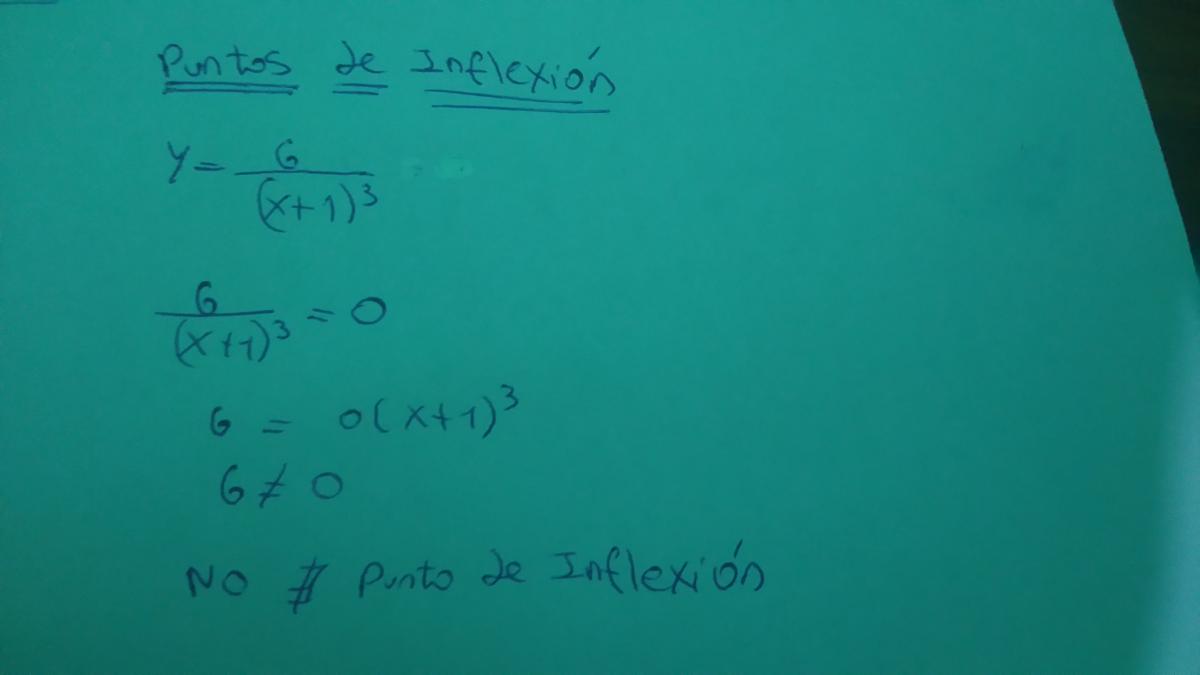 Puntos de Inflexión
Y = 6/(x+1)³
6/(x+1)³ = 0
6 = 0(x+1)³
6 ≠ 0
NO ∄ Punto de Inflexión